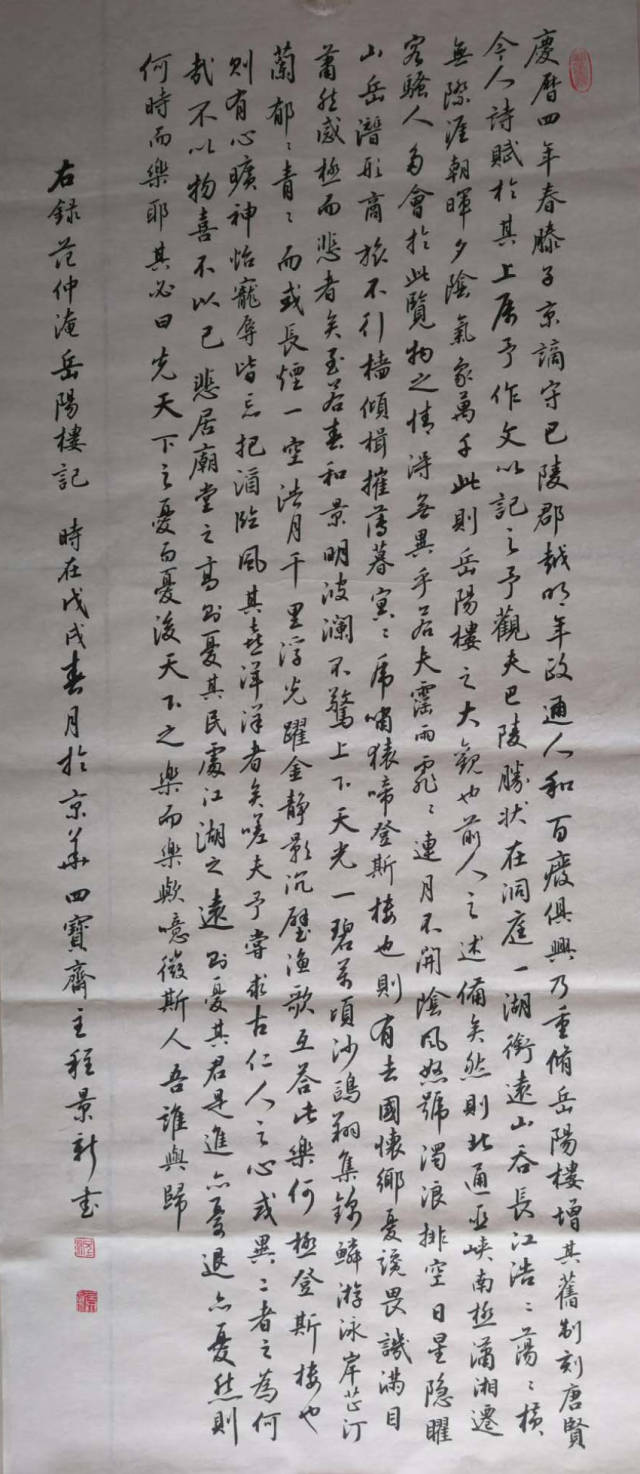 慶曆四年春滕子京謫守巴陵郡越明年政通人和百廢俱興乃重脩岳陽樓增其舊制刻唐賢
今人詩賦於其上属予作文以記之予觀夫巴陵勝状在洞庭一湖銜遠山吞長江浩〻蕩〻橫
無際涯朝暉夕陰氣象萬千此則岳陽樓之大觀也前人之述備矣然則北通巫峽南極瀟湘遷
客騷人多會於此覽物之情得無異乎若夫霪雨霏〻連月不開陰風怒號濁浪排空日星隐曜
山岳潛形商旅不行檣傾楫摧薄暮冥〻虎嘯猿啼登斯樓也則有去國懷鄉憂讒畏譏滿目
蕭然感極而悲者矣至若春和景明波瀾不驚上下天光一碧萬頃沙鷗翔集錦鱗游泳岸芷汀
蘭郁〻青〻而或長煙一空浩月千里浮光躍金静影沉璧渔歌互答此樂何極登斯樓也
則有心曠神怡寵辱皆忘把酒臨風其喜洋洋者矣嗟夫予嘗求古仁人之心或異二者之為何
哉不以物喜不以己悲居廟堂之高則憂其民處江湖之遠則憂其君是進亦憂退亦憂然則
何時而樂耶其必曰先天下之憂而憂後天下之樂而樂歟噫微斯人吾誰與歸
右録范仲淹岳陽樓記 時在戊戌春月於京華四寶齋主程景新书